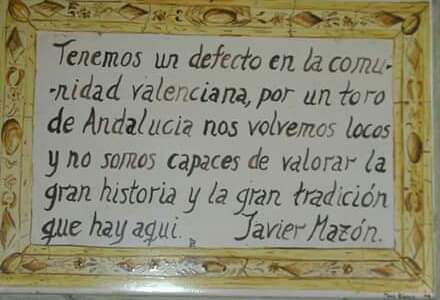 Tenemos un defecto en la comu-
-nidad valenciana, por un toro
de Andalucia nos volvemos locos
y no somos capaces de valorar la
gran historia y la gran tradición
que hay aqui. Javier Mazón.